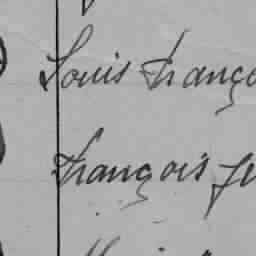 Louis Franço
François